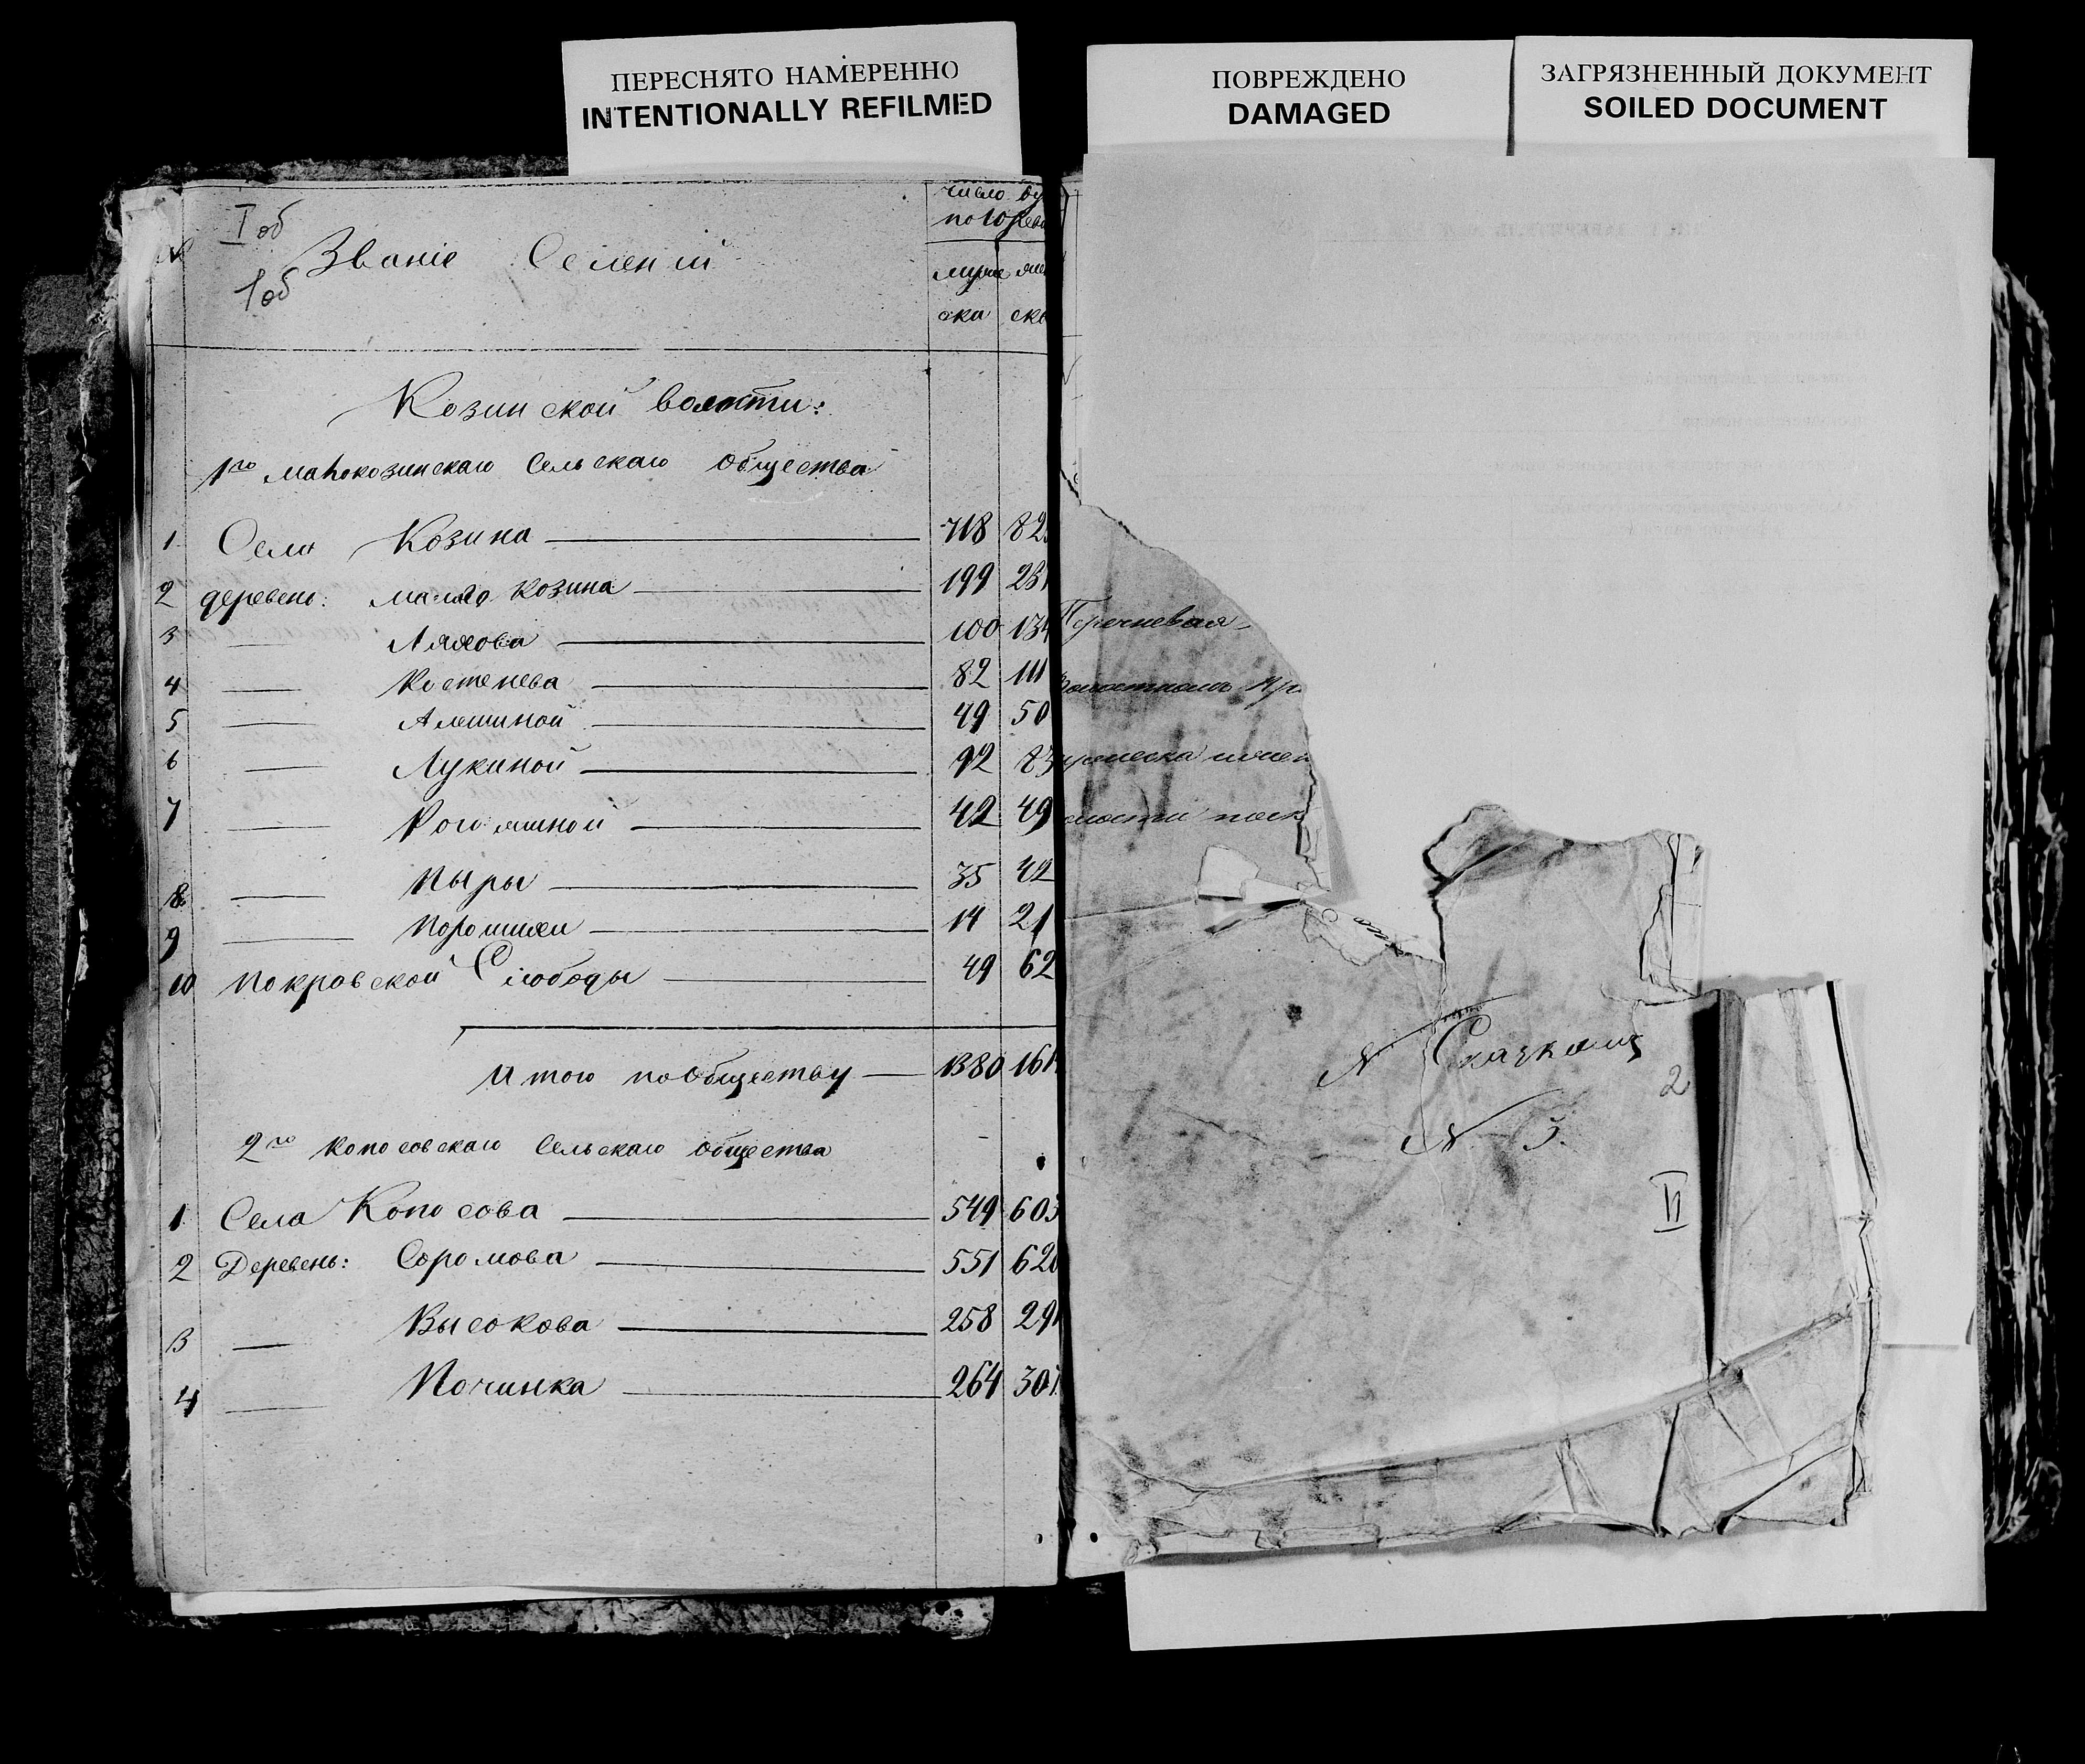 ПЕРЕСНЯТО НАМЕРЕННО
INTENTIONALLY REFILMED
ПОВРЕЖДЕНО
DAMAGED
ЗАГРЯЗНЕННЫЙ ДОКУМЕНТ
SOILED DOCUMENT
I об
1об
№ Званіе Селеній
число
по 10
муже ска
Козинской волости:
1го малокозинскаго Сельскаго Общества
1 Села Козина 718 82
2 деревень: малаго Козина 199 231
3 Ляхова 100 134
4 Костенева 82 111
5 Алешиной 49 50
6 Лукиной 92 83
7 Рогожиной 42 49
8 Пыры 35 42
9 Порошихи 14 21
10 Покровской Слободы 49 62
Итого по Обществу 1380 161
2го Копосовскаго Сельскаго общества
1 Села Копосова 549 603
2 Деревень: Соромова 551 620
3 Высокова 258 291
4 Починка 264 301
Перечневая
волостномъ пр
мужеска и жен
волости
№ Сказкамъ
2
№ 5.
II